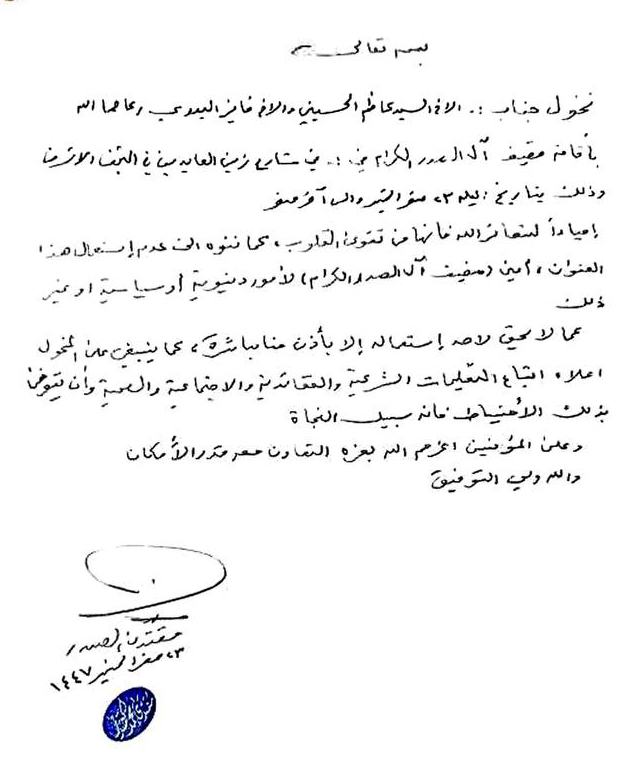 بسمه تعالى
نخول جناب :. الاخ السيد كاظم الحسيني والاخ فايز البدوي رعاهما الله
بأقامة مضيف آل الصدر الكرام في :. في شارع زين العابدين في النجف الاشرف
وذلك بتاريخ : ليلة ٢٣ صفر الخير والى آخر صفر
إحياءاً لشعائر الله فانها من تقوى القلوب ، كما ننوه الى عدم إستعمال هذا
العنوان ، أعني (مضيف آل الصدر الكرام) لأمور دنيوية أو سياسية او غير
ذلك
كما لا يحق لاحد إستعماله إلا بأذن منا مباشرة ، كما ينبغي على المخول
اعلاه اتباع التعليمات الشرعية والعقائدية والاجتماعية والصحية وأن يتوخى
بذلك الأحتياط فانه سبيل النجاة
وعلى المؤمنين اعزهم الله بعزه التعاون معه قدر الأمكان
والله ولي التوفيق
مقتدى الصدر
٢٣ صفر الخير ١٤٤٧